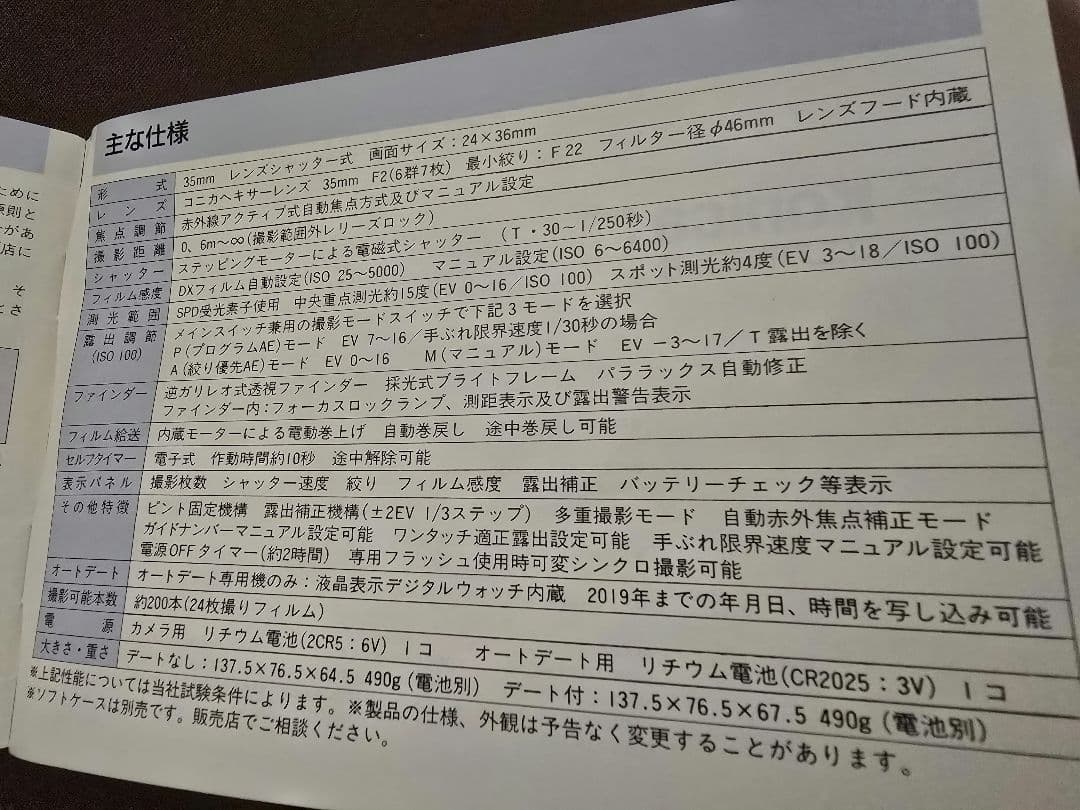 ために
原則と
合があ
店に
そ
とさ
主な仕様
形 式 35mm レンズシャッター式 画面サイズ：24×36mm
レンズ コニカヘキサーレンズ 35mm F2(6群7枚) 最小絞り：F22 フィルター径φ46mm レンズフード内蔵
焦点調節 赤外線アクティブ式自動焦点方式及びマニュアル設定
撮影距離 0．6m〜∞(撮影範囲外レリーズロック)
シャッター ステッピングモーターによる電磁式シャッター (T・30〜1/250秒)
フィルム感度 DXフィルム自動設定(ISO 25〜5000) マニュアル設定(ISO 6〜6400)
測光範囲 SPD受光素子使用 中央重点測光約15度(EV 0〜16／ISO 100) スポット測光約4度(EV 3〜18／ISO 100)
露出調節 メインスイッチ兼用の撮影モードスイッチで下記3モードを選択
(ISO 100) P(プログラムAE)モード EV 7〜16／手ぶれ限界速度1/30秒の場合
A(絞り優先AE)モード EV 0〜16 M(マニュアル)モード EV −3〜17／T露出を除く
ファインダー 逆ガリレオ式透視ファインダー 採光式ブライトフレーム パララックス自動修正
ファインダー内：フォーカスロックランプ、測距表示及び露出警告表示
フィルム給送 内蔵モーターによる電動巻上げ 自動巻戻し 途中巻戻し可能
セルフタイマー 電子式 作動時間約10秒 途中解除可能
表示パネル 撮影枚数 シャッター速度 絞り フィルム感度 露出補正 バッテリーチェック等表示
その他特徴 ピント固定機構 露出補正機構(±2EV 1/3ステップ) 多重撮影モード 自動赤外焦点補正モード
ガイドナンバーマニュアル設定可能 ワンタッチ適正露出設定可能 手ぶれ限界速度マニュアル設定可能
電源OFFタイマー(約2時間) 専用フラッシュ使用時可変シンクロ撮影可能
オートデート オートデート専用機のみ：液晶表示デジタルウォッチ内蔵 2019年までの年月日、時間を写し込み可能
撮影可能本数 約200本(24枚撮りフィルム)
電 源 カメラ用 リチウム電池(2CR5：6V) 1コ オートデート用 リチウム電池(CR2025：3V) 1コ
大きさ・重さ デートなし：137.5×76.5×64.5 490g(電池別) デート付：137.5×76.5×67.5 490g(電池別)
※上記性能については当社試験条件によります。※製品の仕様、外観は予告なく変更することがあります。
※ソフトケースは別売です。販売店でご相談ください。